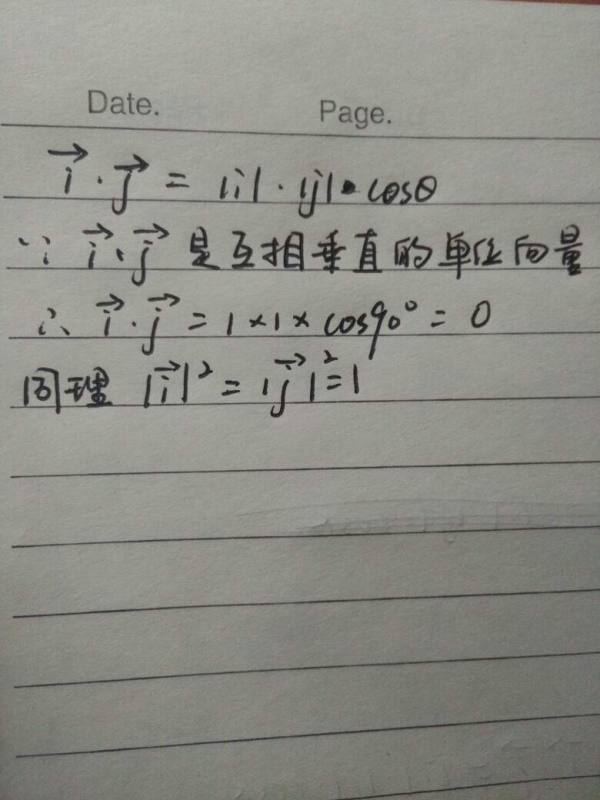 Date. Page.
$\vec{i} \cdot \vec{j} = |i| \cdot |j| \cdot \cos\theta$
∵ $\vec{i}、\vec{j}$ 是互相垂直的单位向量
∴ $\vec{i} \cdot \vec{j} = 1 \times 1 \times \cos 90° = 0$
同理 $|\vec{i}|^2 = |\vec{j}|^2 = 1$